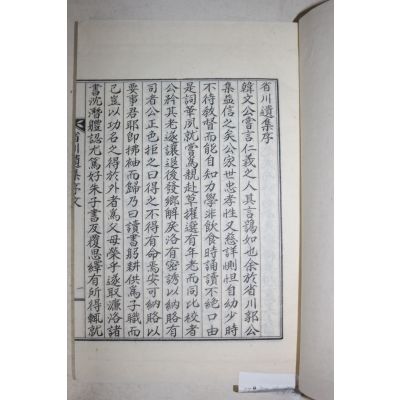 省川遺集序
韓文公嘗言仁義之人其言藹如也余於省川郭公
集益信之矣公家世忠孝性又慈詳惻怛自幼少時
不待敎督而能自知力學非飮食時誦讀不絶口由
是詞華夙就嘗爲親赴草擢選有年老而同比校者
公矜其老遂讓退後發鄕解戾洛有密誘以納賂有
司者公正色拒之曰得之不得有命焉安可納賂以
要事君耶卽拂袖而歸乃曰讀書躬耕供爲子職而
已豈以功名之得於外者爲父母榮乎遂取濂洛諸
書沈潛體認尤篤好朱子書反覆思繹有所得輒就
省川遺集序文